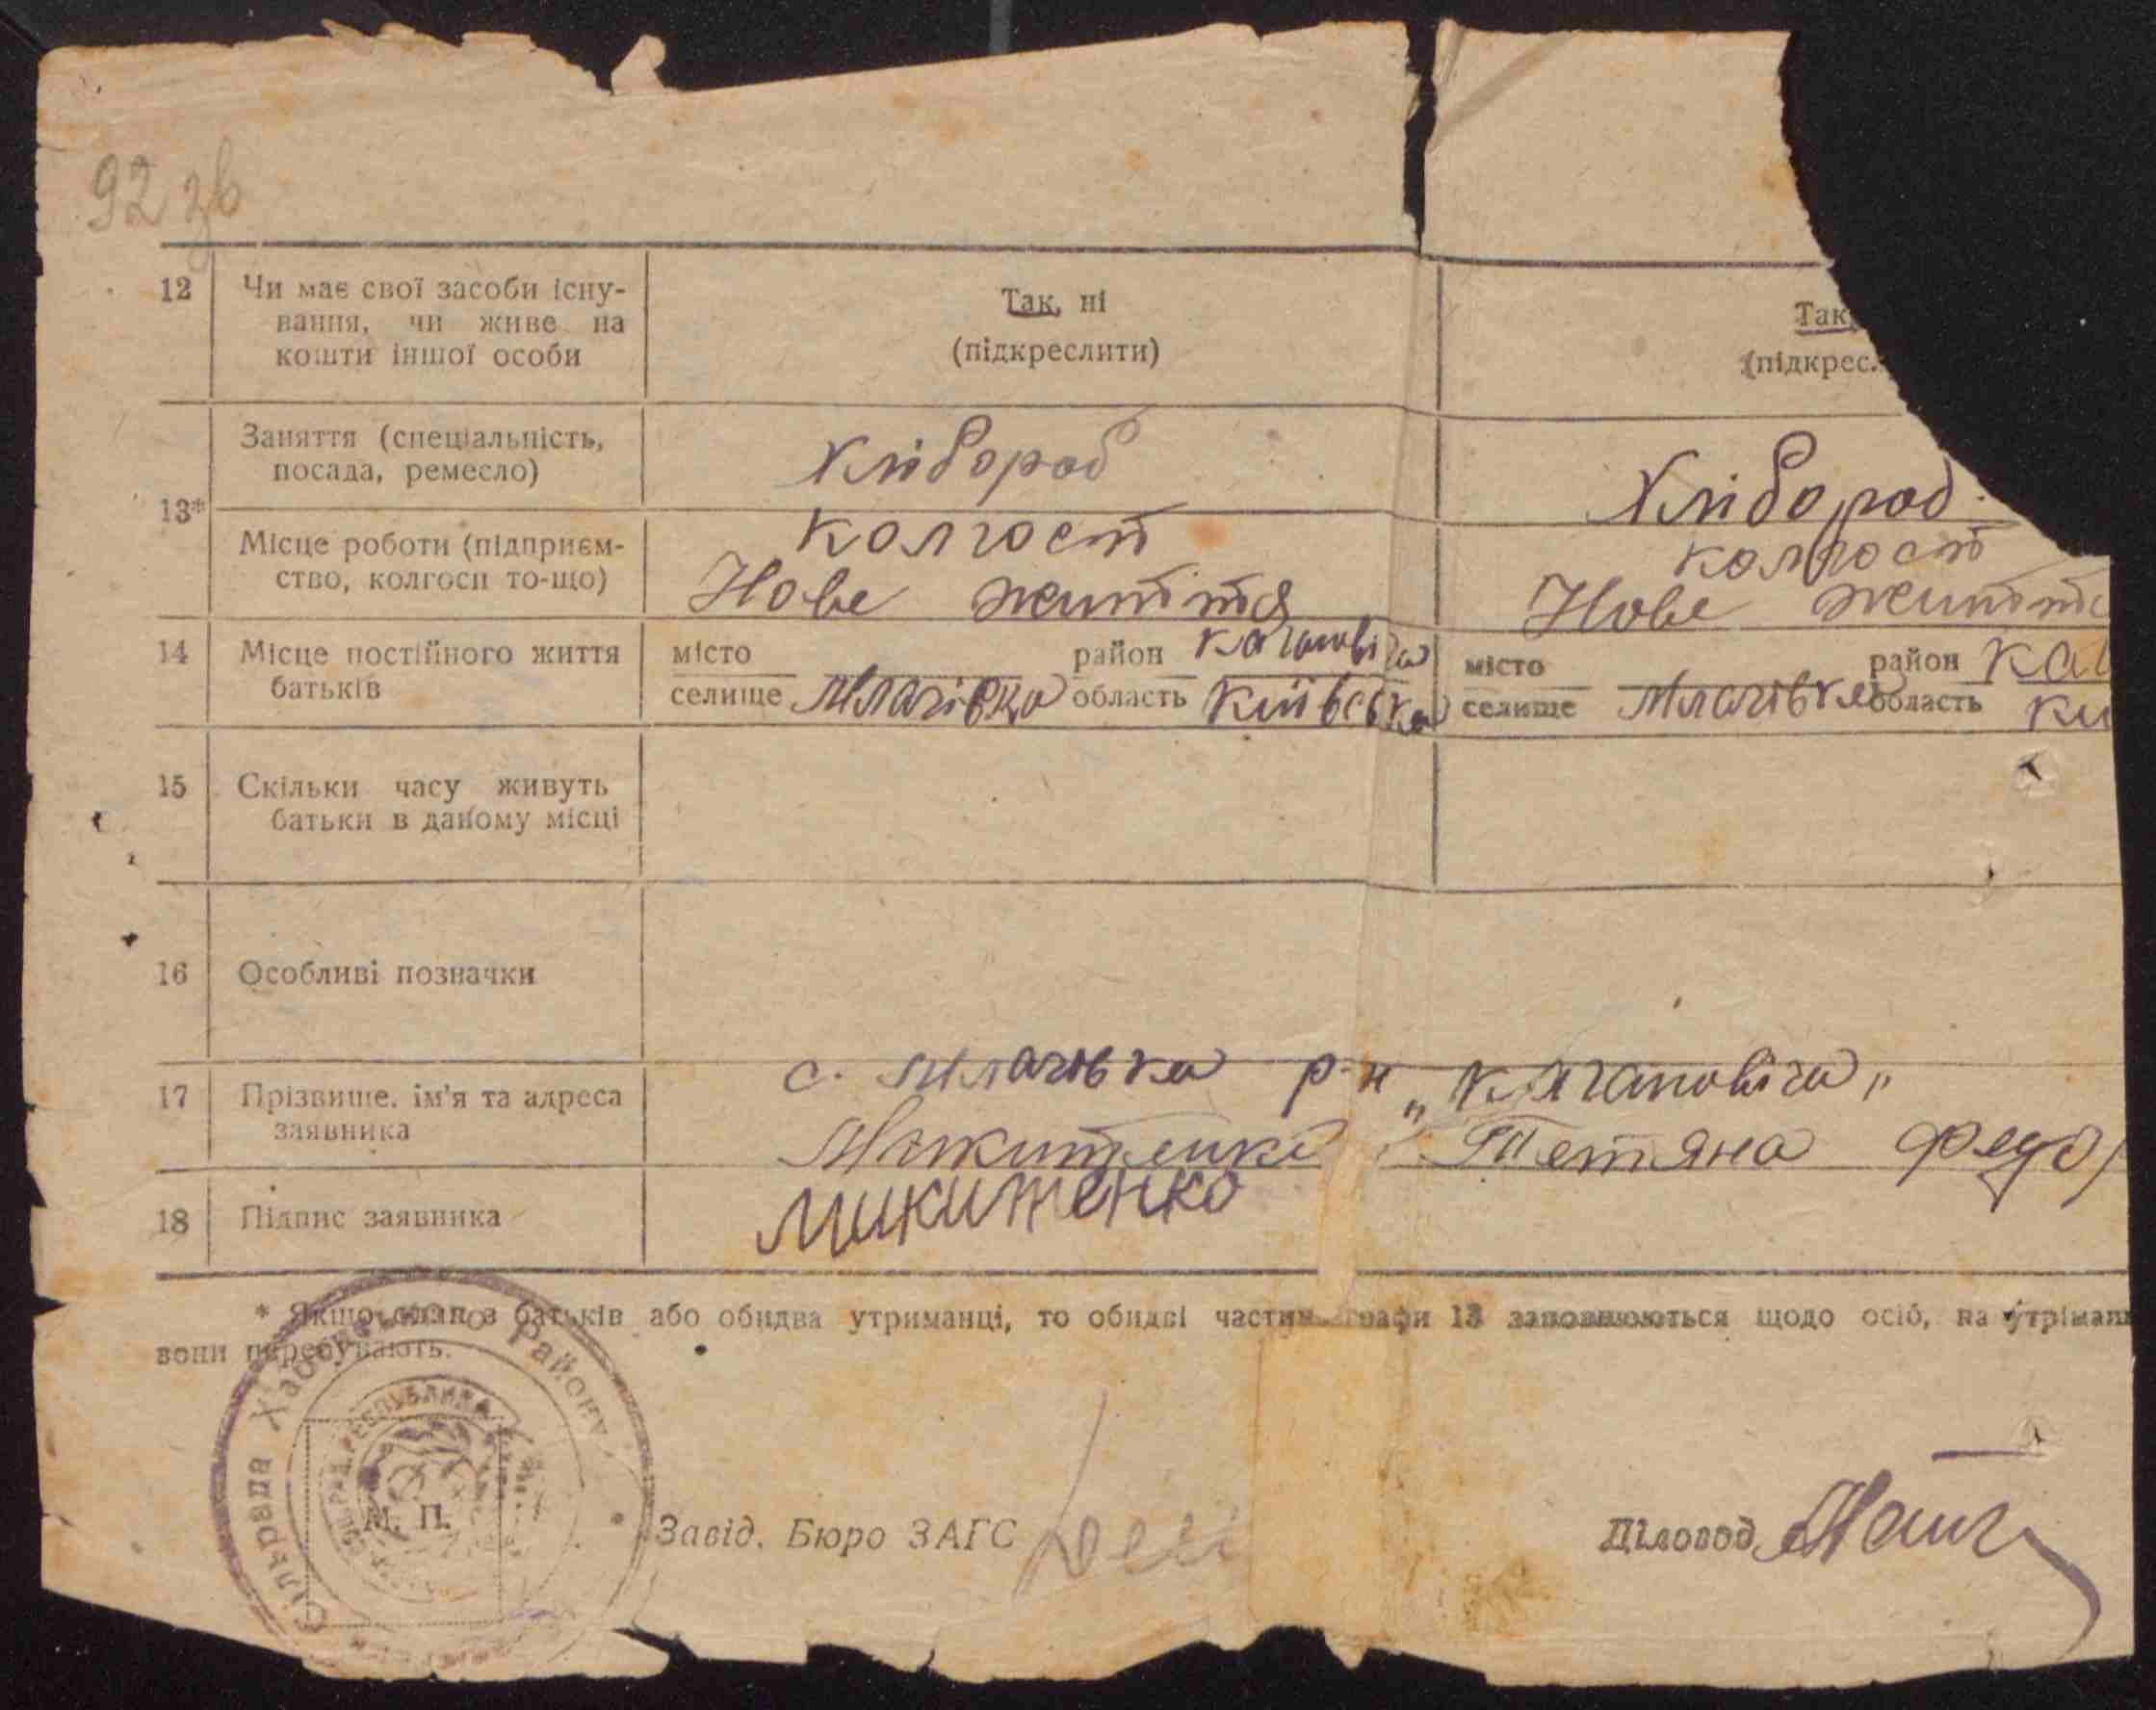 92 зв
12 Чи має свої засоби існу-
вання, чи живе на
кошти іншої особи
Так, ні
(підкреслити)
Так,
(підкрес
Заняття (спеціальність,
посада, ремесло)
Хлібороб
Хлібороб
13*
Місце роботи (підприєм-
ство, колгосп то-що)
колгосп
Нове життя
колгосп
Нове життя
14 Місце постійного життя
батьків
місто район Кагановіча
селище Млачівка область Київська
місто район Каг
селище Млачівка область Ки
15 Скільки часу живуть
батьки в даному місці
16 Особливі позначки
17 Прізвище, ім'я та адреса
заявника
с. Млачівка р-н „Кагановіча"
Микитенко Тетяна Федо
18 Підпис заявника
Микитенко
* Якщо один з батьків або обидва утриманці, то обидві частини графи 13 заповнюються щодо осіб, на утріман
вони перебувають.
Сільрада Хабенського Району
РЕСПУБЛИКА
М. П.
Завід. Бюро ЗАГС
Діловод